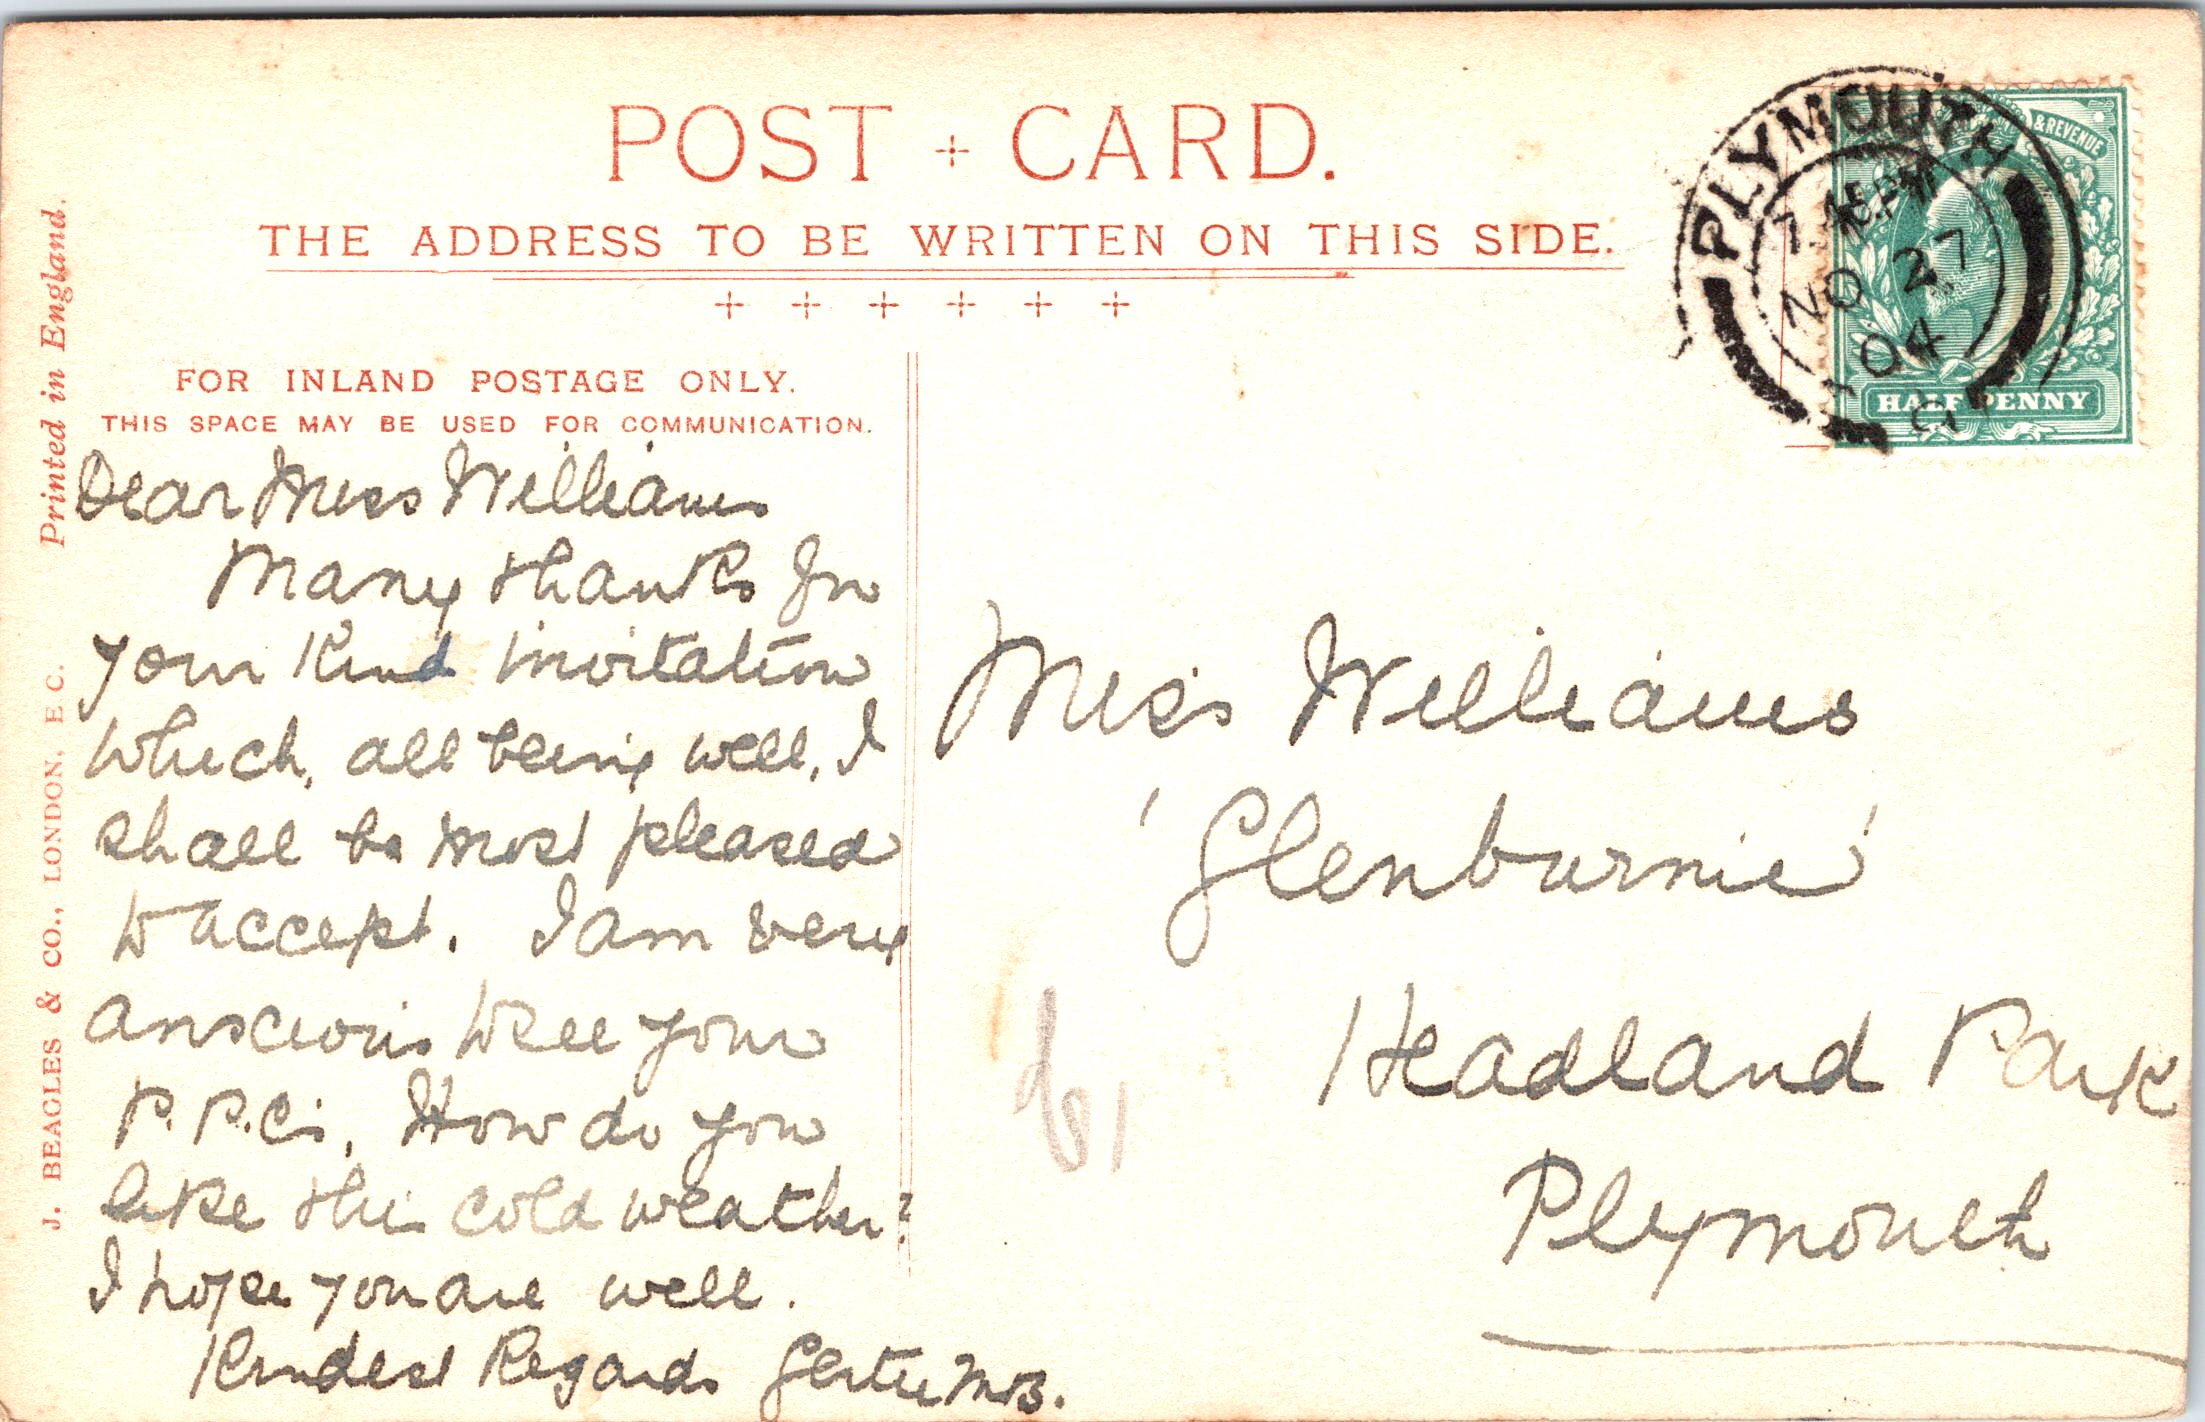 POST CARD.
THE ADDRESS TO BE WRITTEN ON THIS SIDE.
Printed in England.
J. BEAGLES & CO., LONDON, E.C.
FOR INLAND POSTAGE ONLY.
THIS SPACE MAY BE USED FOR COMMUNICATION.
Dear Miss Williams
Many thanks for
your kind invitation
which, all being well, I
shall be most pleased
to accept. I am very
anxious to see your
P.P.Cs, How do you
like this cold weather?
I hope you are well.
Kindest Regards Gertie MB.
Miss Williams
'Glenburnie'
Headland Park
Plymouth
PLYMOUTH
NO 27
04
& REVENUE
HALFPENNY